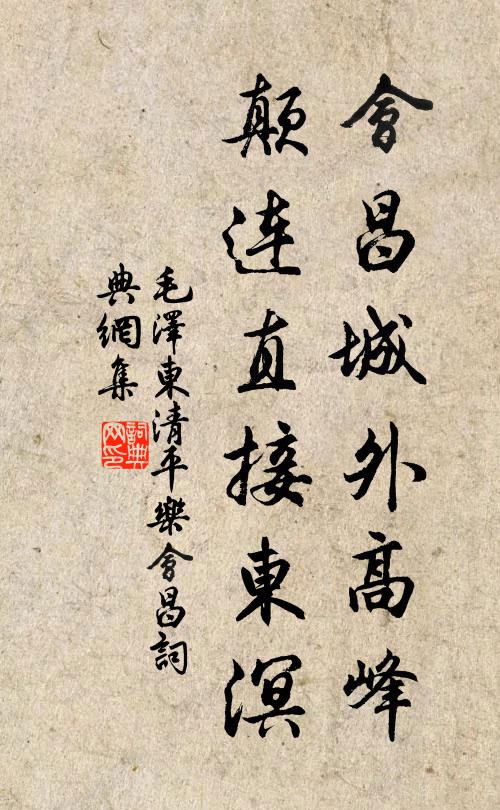 會昌城外高峰
顛连直接東溟
毛澤東清平樂會昌詞
典網集
詞典
网印